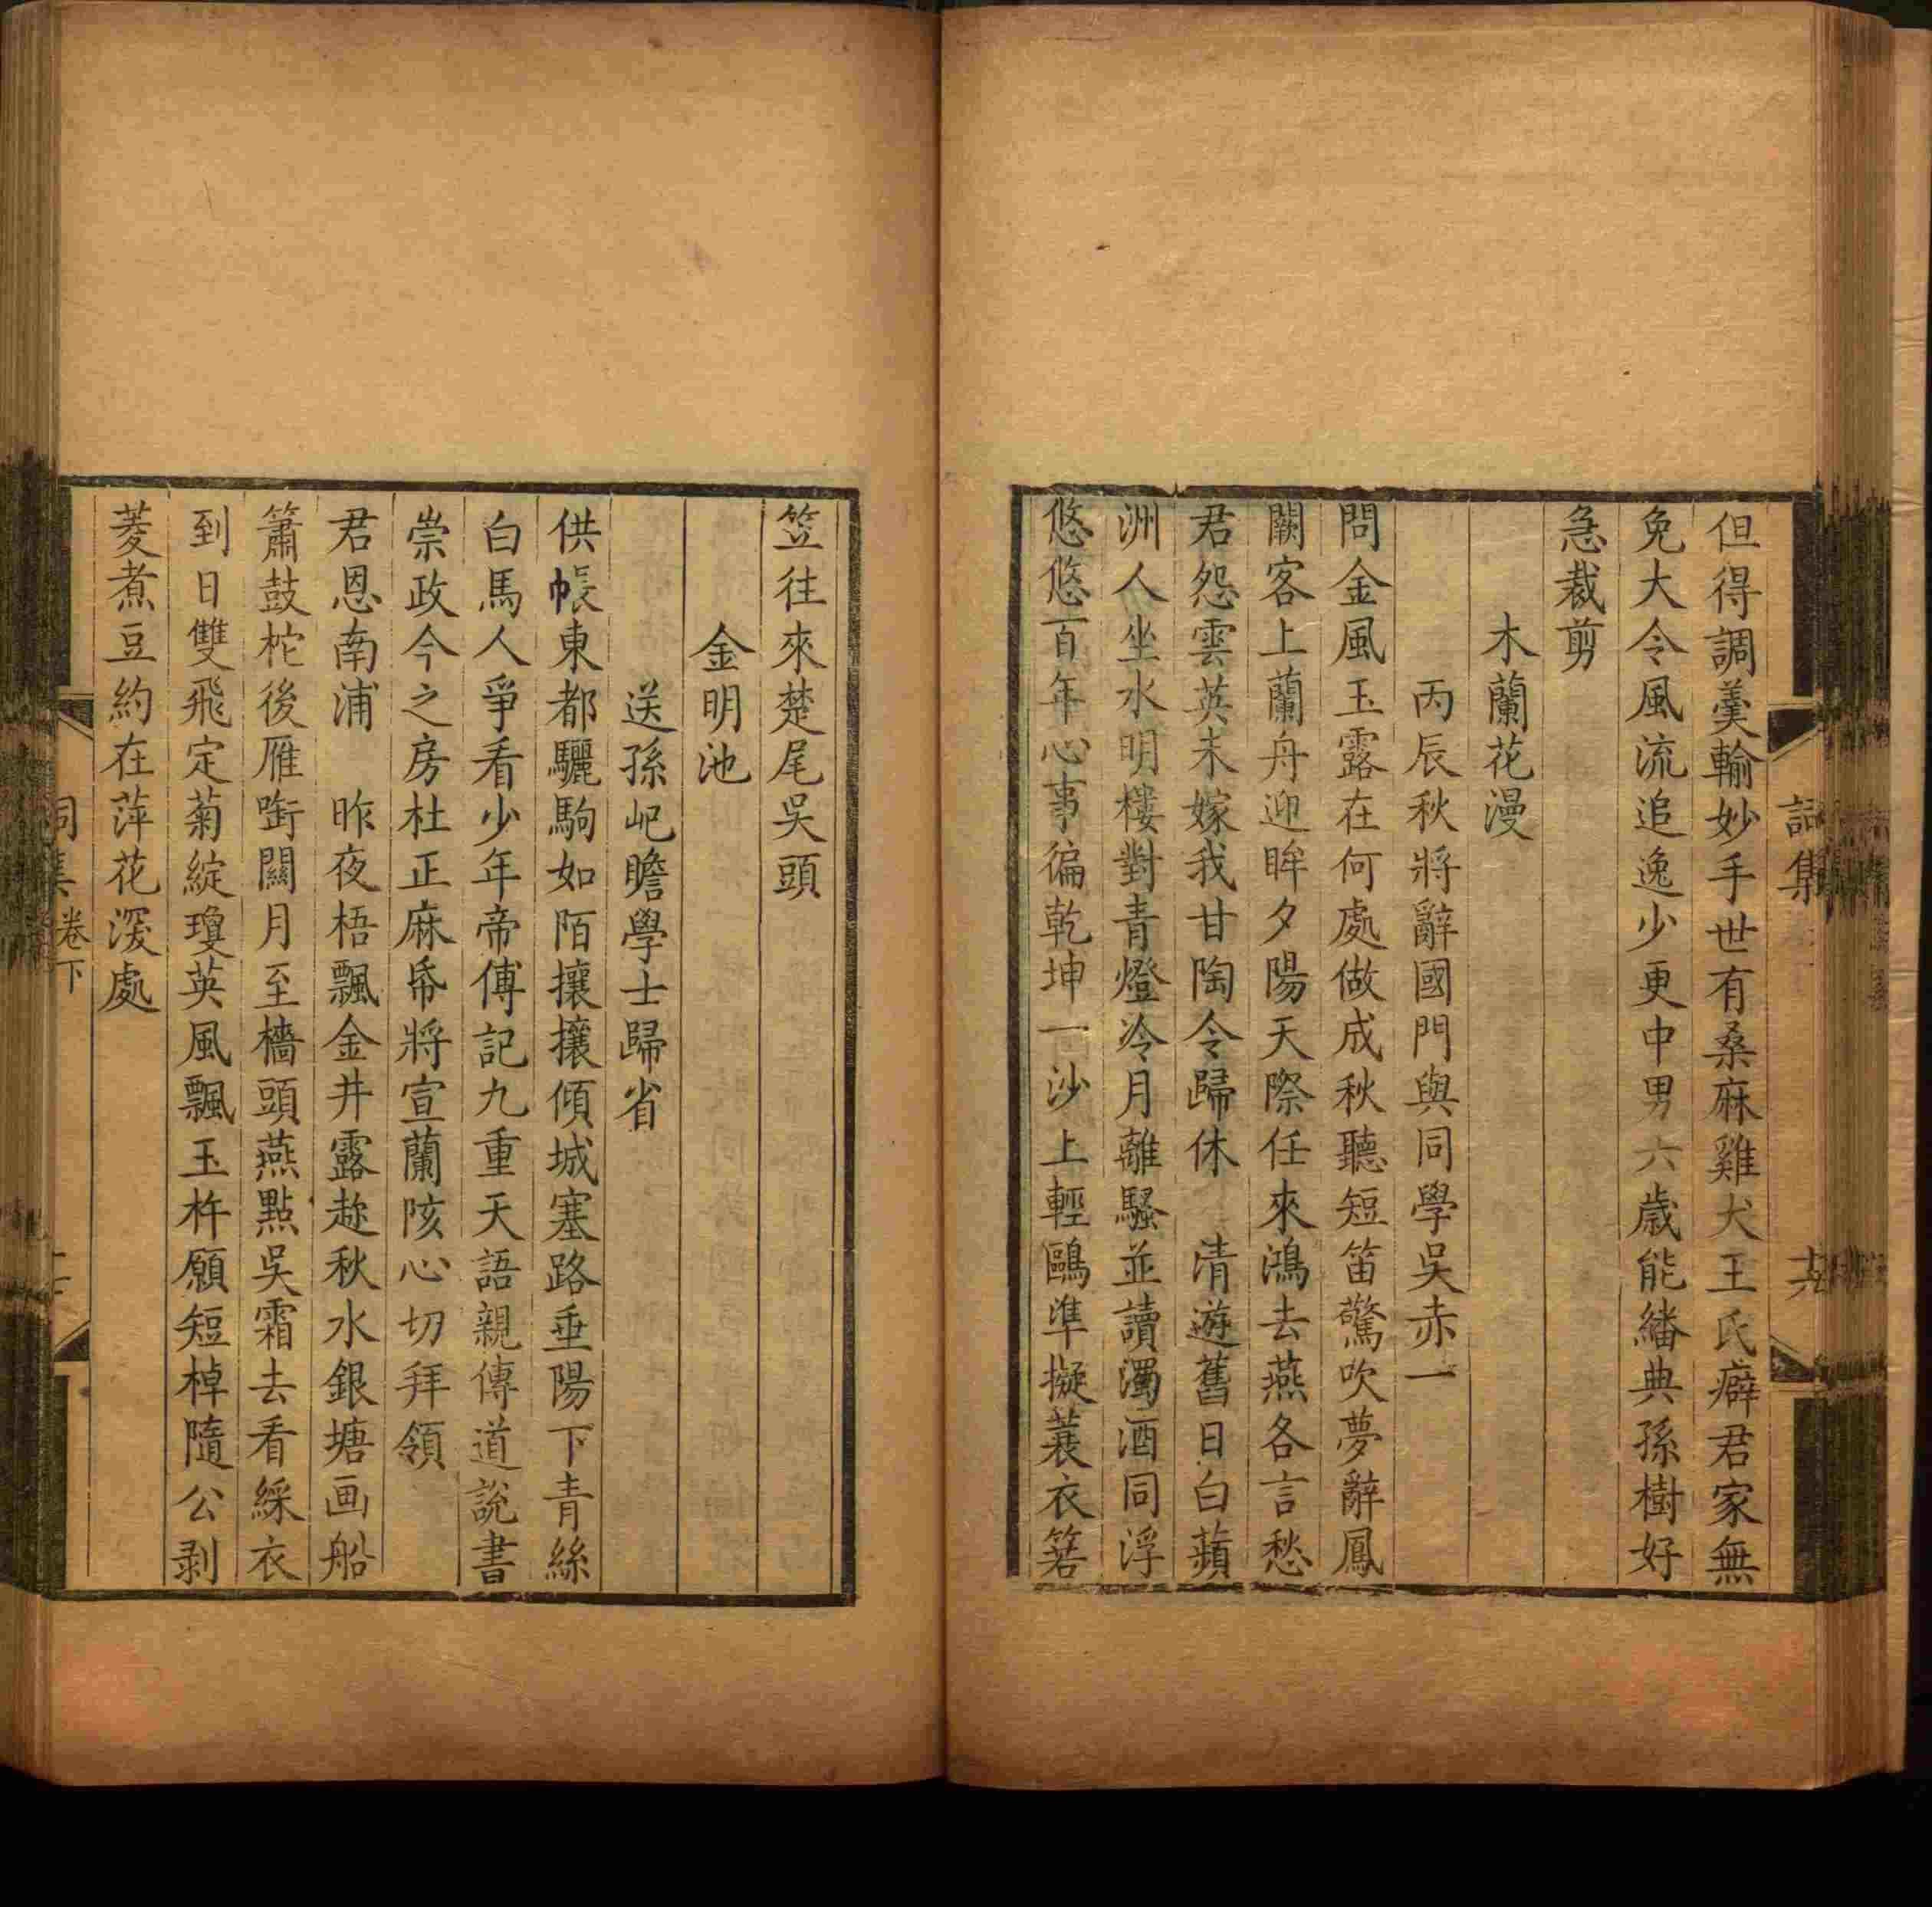 但得調羹輸妙手世有桑麻雞犬王氏癖君家無
免大令風流追逸少更中男六歲能繙典孫樹好
急裁剪
木蘭花漫
丙辰秋將辭國門與同學吳赤一
問金風玉露在何處做成秋聽短笛驚吹夢辭鳳
闕客上蘭舟迎眸夕陽天際任來鴻去燕各言愁
君怨雲英未嫁我甘陶令歸休　清遊舊日白蘋
洲人坐水明樓對青燈冷月離騷並讀濁酒同浮
悠悠百年心事徧乾坤一沙上輕鷗準擬蓑衣箬
詞集
笠往來楚尾吳頭
金明池
送孫屺瞻學士歸省
供帳東都驪駒如陌攘攘傾城塞路垂陽下青絲
白馬人爭看少年帝傅記九重天語親傳道説書
崇政今之房杜正麻帋將宣蘭陔心切拜領
君恩南浦　昨夜梧飄金井露趂秋水銀塘画船
簫鼓柁後雁啣關月至檣頭燕點吳霜去看綵衣
到日雙飛定菊綻瓊英風飄玉杵願短棹隨公剥
菱煮豆約在萍花深處
詞集 卷下